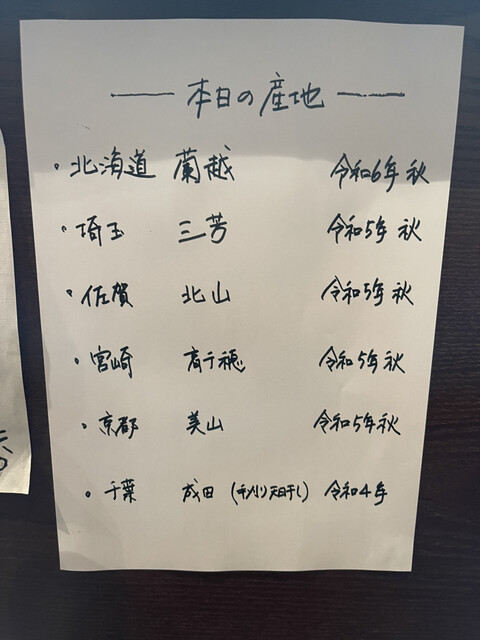 本日の産地
・北海道 蘭越 令和6年 秋
・埼玉 三芳 令和5年 秋
・佐賀 北山 令和5年 秋
・宮崎 高千穂 令和5年 秋
・京都 美山 令和5年 秋
・千葉 成田 (手刈り天日干し) 令和4年